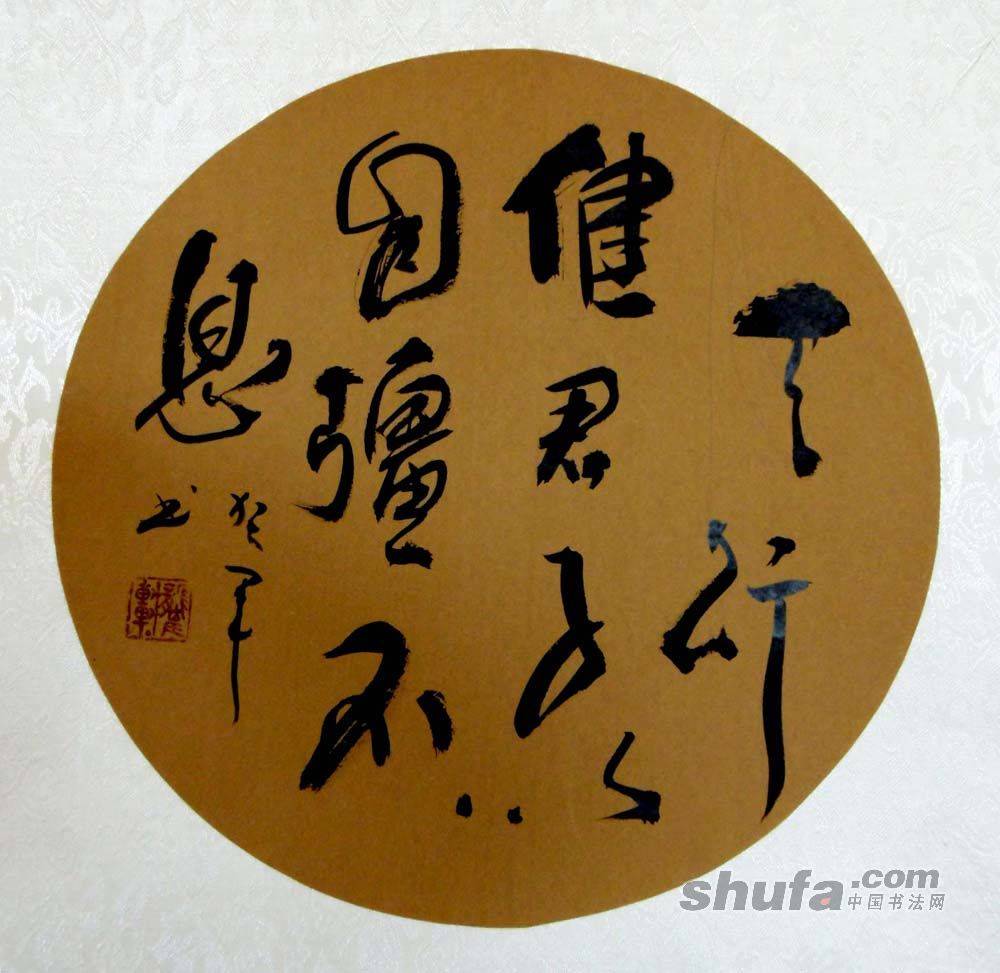 天行
健君子以
自彊不
息
书
shufa.com
中国书法网